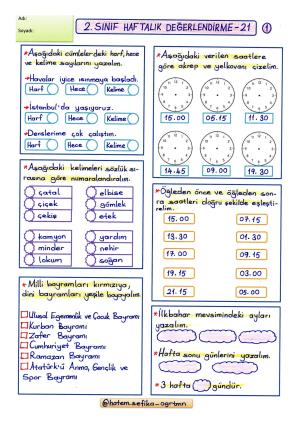 Adı:
Soyadı:
2. SINIF HAFTALIK DEĞERLENDİRME-21
1
*Aşağıdaki cümlelerdeki harf, hece ve kelime sayılarını yazalım.
*Havalar iyice ısınmaya başladı.
Harf Hece Kelime
*İstanbul'da yaşıyoruz.
Harf Hece Kelime
*Derslerime çok çalıştım.
Harf Hece Kelime
*Aşağıdaki kelimeleri sözlük sırasına göre numaralandıralım.
çatal
çiçek
çekiş
elbise
gömlek
etek
kamyon
minder
lokum
yardım
nehir
soğan
*Milli bayramları kırmızıya, dini bayramları yeşile boyayalım.
Ulusal Egemenlik ve Çocuk Bayramı
Kurban Bayramı
Zafer Bayramı
Cumhuriyet Bayramı
Ramazan Bayramı
Atatürk'ü Anma, Gençlik ve Spor Bayramı
*Aşağıdaki verilen saatlere göre akrep ve yelkovanı çizelim.
15.00 05.15 11.30
14.45 09.00 19.30
*Öğleden önce ve öğleden sonra saatleri doğru şekilde eşleştirelim.
15.00 07.15
13.30 01.30
17.00 09.15
19.15 03.00
21.15 05.00
*İlkbahar mevsimindeki ayları yazalım.
*Hafta sonu günlerini yazalım.
*3 hafta gündür.
@hatem.sefika_ogrtmn